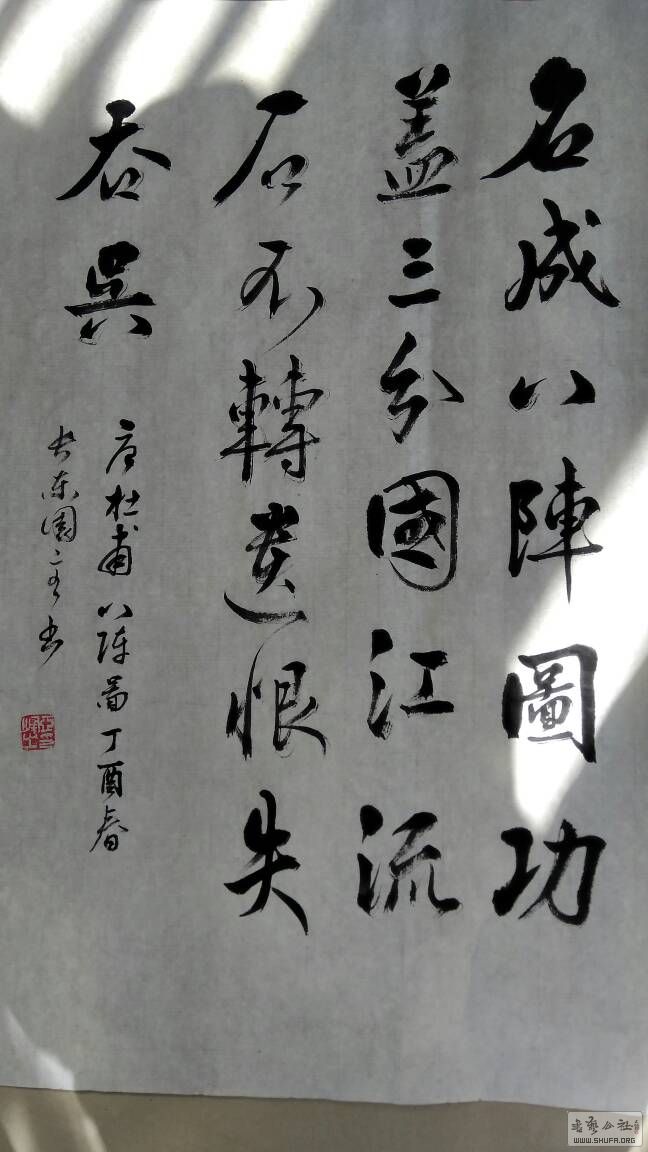 名成八陣圖功
蓋三分國江流
石不轉遺恨失
吞吳
唐杜甫八陣圖丁酉春
书
WWW.SHUFA.ORG